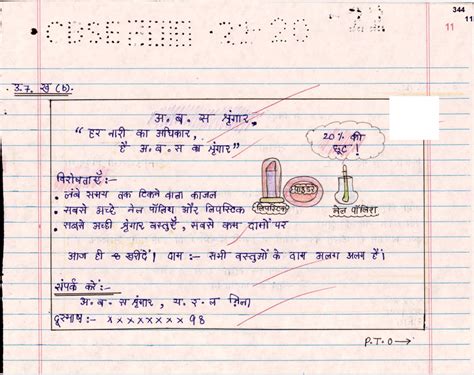 344
11
11
CBSE 21-20
उ.7. ख (b).
अ. ब. स श्रृंगार
"हर नारी का अधिकार,
है अ. ब. स का श्रृंगार"
20% की
छूट !
विशेषताएँ:-
• लंबे समय तक टिकने वाला काजल
• सबसे अच्छे नेल पॉलिश और लिपस्टिक
• सबसे अच्छी श्रृंगार वस्तुएँ, सबसे कम दामों पर
लिपस्टिक
पाउडर
नेल पॉलिश
आज ही खरीदें! दाम:- सभी वस्तुओं के दाम अलग अलग हैं।
संपर्क करें:-
अ. ब. स श्रृंगार, य. र. ल
दूरभाष:- xxxxxxxx98
P.T.O→